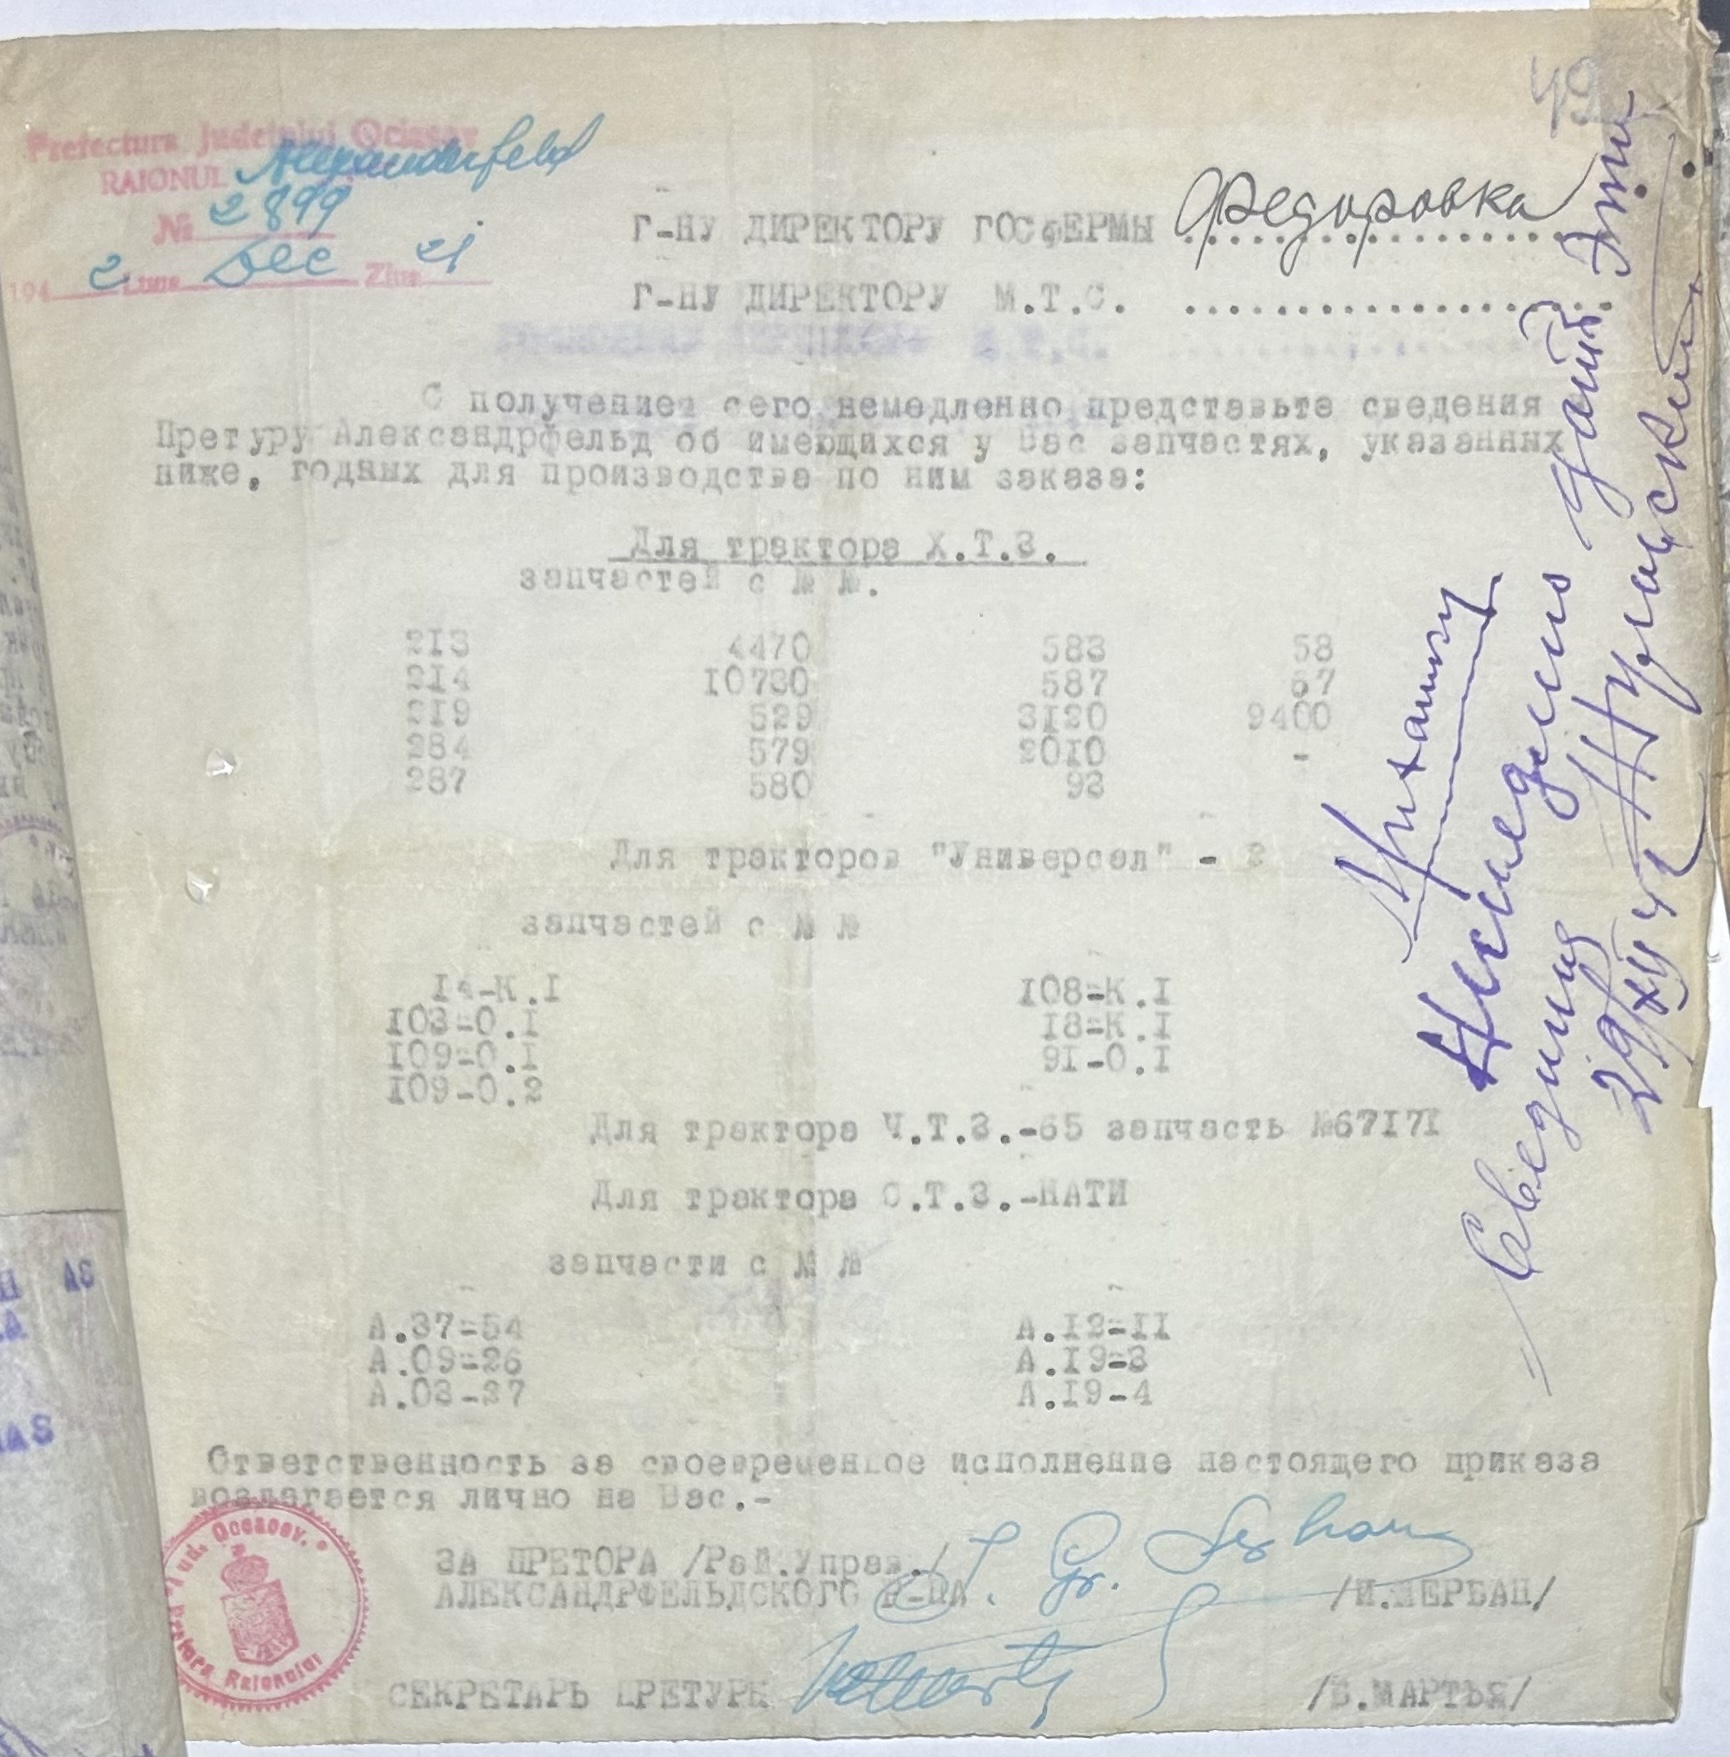 49
Prefectura Judetului Oceacov
RAIONUL Alexanderfeld
№ 2899
194 2 Luna Dec Ziua 21
Г-НУ ДИРЕКТОРУ ГОСФЕРМЫ Федоровка
Г-НУ ДИРЕКТОРУ М.Т.С. ................
С получением сего немедленно представьте сведения
Претуру Александрфельд об имеющихся у Вас запчастях, указанных
ниже, годных для производства по ним заказа:
Для трактора Х.Т.З.
запчастей с № №.
213 4470 583 58
214 10730 587 67
219 529 3120 9400
284 579 2010 -
287 580 93
Для тракторов "Универсал" - 2
запчастей с № №
14-К.I 108-К.I
103-0.I 18-К.I
109-0.I 91-0.I
109-0.2
Для трактора Ч.Т.З.-65 запчасть №67171
Для трактора С.Т.З.-НАТИ
запчасти с № №
А.37-54 А.12-11
А.09-26 А.19-3
А.03-27 А.19-4
Ответственность за своевременное исполнение настоящего приказа
возлагается лично на Вас.-
ЗА ПРЕТОРА /Рай.Управ./
АЛЕКСАНДРФЕЛЬДСКОГО Р-НА. /И.ШЕРБАН/
СЕКРЕТАРЬ ПРЕТУРЫ /В.МАРТЬЯ/
Jud. Oceacov
Pretura Raionului
Немедленно дать эти
сведения
29/XII 42